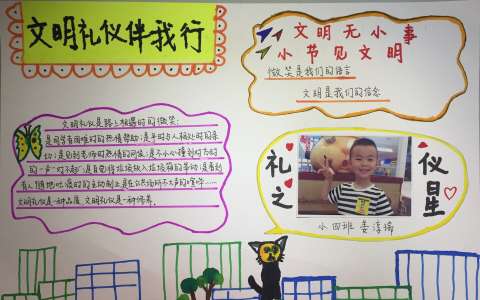 文明礼仪伴我行
文明无小事
小节见文明
微笑是我们的语言
文明是我们的信念
文明礼仪是路上相遇时的微笑;
是同学有困难时的热情帮助;是平时与人相处时的亲
切;是见到老师时热情的问候;是不小心撞到对方时
的一声"对不起";是自觉将垃圾放入垃圾箱的举动;是看到
有人随地吐痰时的主动制止是在公共场所不大声的喧哗……
文明礼仪是一种品质,文明礼仪是一种修养。
礼仪
之星
小四班 姜淳稀